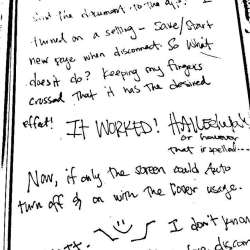 the document to the
turned on a setting - Save/Start
new page when disconnect. So what
does it do? Keeping my fingers
crossed that it has the desired
effect! IT WORKED! HALLEeluYah
or however
that is spelled...
Now, if only the screen could Auto
turn off & on with the Cover usage.
I don't know